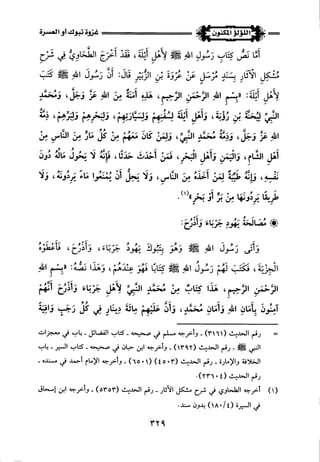 غزوة تبوك أو العسرة
اللؤلؤ المكنون
أمَّا نَصُّ كِتَابِ رَسُولِ اللهِ ﷺ لِأَهْلِ أَيْلَةَ، فَقَدْ أَخْرَجَ الطَّحَاوِيُّ فِي شَرْحِ
مُشْكِلِ الْآثَارِ بِسَنَدٍ مُرْسَلٍ عَنْ عُرْوَةَ بنِ الزُّبَيْرِ قَالَ: أَنَّ رَسُولَ اللهِ ﷺ كَتَبَ
لِأَهْلِ أَيْلَةَ: «بِسْمِ اللهِ الرَّحْمَنِ الرَّحِيمِ، هَذِهِ أَمَنَةٌ مِنَ اللهِ عَزَّ وَجَلَّ، وَمُحَمَّدٍ
النَّبِيِّ لِيُحَنَّةَ بْنِ رُؤْبَةَ، وَأَهْلِ أَيْلَةَ لِسُفُنِهِمْ وَلِسَيَّارَتِهِمْ، وَلِبَحْرِهِمْ وَلِبَرِّهِمْ، ذِمَّةُ
اللهِ عَزَّ وَجَلَّ، وَذِمَّةُ مُحَمَّدٍ النَّبِيِّ، وَلِمَنْ كَانَ مَعَهُمْ مِنْ كُلِّ مَارٍّ مِنَ النَّاسِ مِنْ
أَهْلِ الشَّامِ، وَالْيَمَنِ وَأَهْلِ الْبَحْرِ، فَمَنْ أَحْدَثَ حَدَثًا، فَإِنَّهُ لَا يَحُولُ مَالُهُ دُونَ
نَفْسِهِ، وَإِنَّهُ طَيِّبَةٌ لِمَنْ أَخَذَهُ مِنَ النَّاسِ، وَلَا يَحِلُّ أَنْ يُمْنَعُوا مَاءً يَرِدُونَهُ، وَلَا
طَرِيقًا يَرِدُونَهَا مِنْ بَرٍّ أَوْ بَحْرٍ»(١).
مُصَالَحَةُ يَهُودِ جَرْبَاءَ، وَأَذْرُحَ:
وَأَتَى رَسُولَ اللهِ ﷺ وَهُوَ بِتَبُوكَ يَهُودُ جَرْبَاءَ، وَأَذْرُحَ، فَأَعْطَوْهُ
الْجِزْيَةَ، فَكَتَبَ لَهُمْ رَسُولُ اللهِ ﷺ كِتَابًا فَهُوَ عِنْدَهُمْ، وَهَذَا نَصُّهُ: «بِسْمِ اللهِ
الرَّحْمَنِ الرَّحِيمِ، هَذَا كِتَابٌ مِنْ مُحَمَّدٍ النَّبِيِّ لِأَهْلِ جَرْبَاءَ وَأَذْرُحَ أَنَّهُمْ
آمِنُونَ بِأَمَانِ اللهِ وَأَمَانِ مُحَمَّدٍ، وَأَنَّ عَلَيْهِمْ مِائَةَ دِينَارٍ فِي كُلِّ رَجَبٍ وَافِيَةً
= رقم الحديث (٣١٦١) - وأخرجه مسلم في صحيحه - كتاب الفضائل - باب في معجزات
النبي ﷺ - رقم الحديث (١٣٩٢) - وأخرجه ابن حبان في صحيحه - كتاب السير - باب
الخلافة والإمارة - رقم الحديث (٤٥٠٣) (٦٥٠١) - وأخرجه الإمام أحمد في مسنده -
رقم الحديث (٢٣٦٠٤).
(١) أخرجه الطحاوي في شرح مشكل الآثار - رقم الحديث (٥٣٥٣) - وأخرجه ابن إسحاق
في السيرة (١٨٠/٤) بدون سند.
٣٢٩